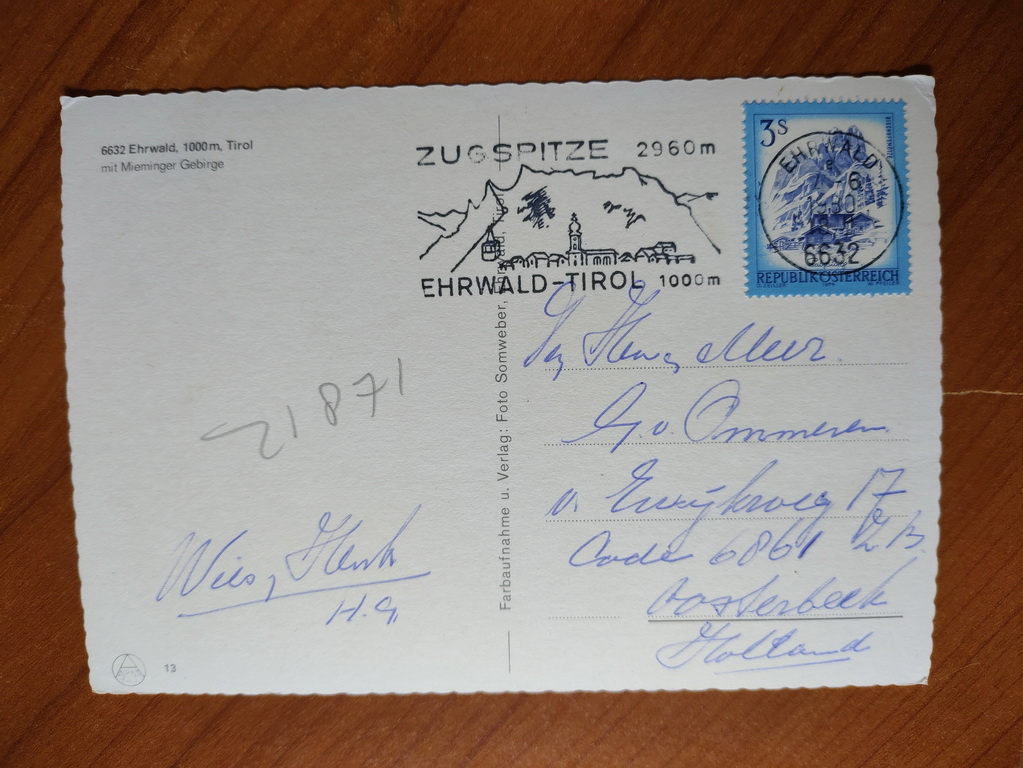 6632 Ehrwald, 1000m, Tirol
mit Mieminger Gebirge
ZUGSPITZE 2960m
EHRWALD-TIROL 1000m
3S
EHRWALD
6632
REPUBLIK ÖSTERREICH
Farbaufnahme u. Verlag: Foto Somweber, Ehrwald, Tirol
21871
Meer
G. v. Ommeren
v. 17
Code 6861 ZB
Oosterbeek
Holland
Wies, Henk
H.G.
13